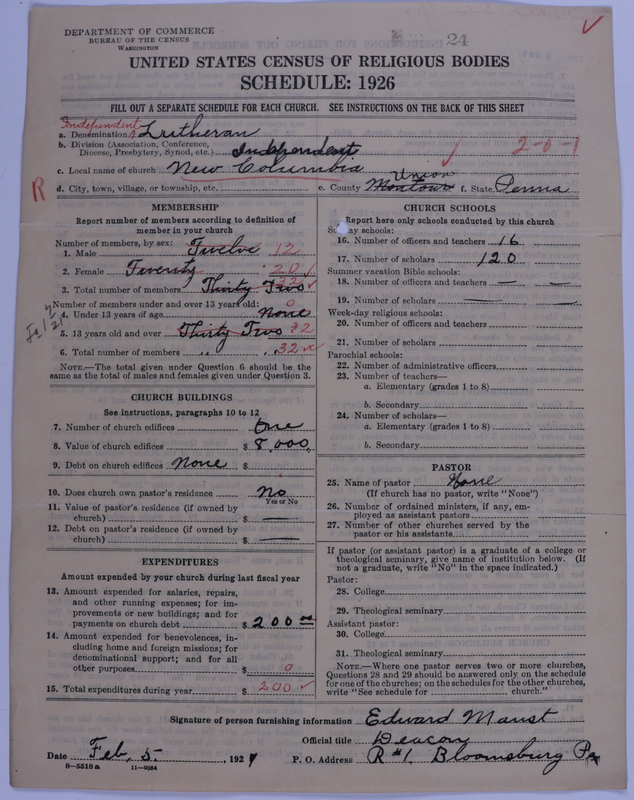 DEPARTMENT OF COMMERCE
BUREAU OF THE CENSUS
WASHINGTON
24
UNITED STATES CENSUS OF RELIGIOUS BODIES
SCHEDULE: 1926
FILL OUT A SEPARATE SCHEDULE FOR EACH CHURCH. SEE INSTRUCTIONS ON THE BACK OF THIS SHEET
Independent
a. Denomination Lutheran
b. Division (Association, Conference, Diocese, Presbytery, Synod, etc.) Independent 2-6-1
c. Local name of church New Columbia
d. City, town, village, or township, etc. e. County Union Montour f. State Penna
R
MEMBERSHIP
Report number of members according to definition of member in your church
Number of members, by sex:
1. Male Twelve 12
2. Female Twenty 20
3. Total number of members Thirty Two 32
Number of members under and over 13 years old:
4. Under 13 years of age None 0
5. 13 years old and over Thirty Two 32
6. Total number of members " " 32
NOTE.—The total given under Question 6 should be the same as the total of males and females given under Question 3.
CHURCH BUILDINGS
See instructions, paragraphs 10 to 12
7. Number of church edifices One
8. Value of church edifices $ 8,000
9. Debt on church edifices None $
10. Does church own pastor's residence No
Yes or No
11. Value of pastor's residence (if owned by church) $ —
12. Debt on pastor's residence (if owned by church) $ —
EXPENDITURES
Amount expended by your church during last fiscal year
13. Amount expended for salaries, repairs, and other running expenses; for improvements or new buildings; and for payments on church debt $ 200 00
14. Amount expended for benevolences, including home and foreign missions; for denominational support; and for all other purposes $ 0
15. Total expenditures during year $ 200
CHURCH SCHOOLS
Report here only schools conducted by this church
Sunday schools:
16. Number of officers and teachers 16
17. Number of scholars 120
Summer vacation Bible schools:
18. Number of officers and teachers —
19. Number of scholars —
Week-day religious schools:
20. Number of officers and teachers
21. Number of scholars
Parochial schools:
22. Number of administrative officers
23. Number of teachers—
a. Elementary (grades 1 to 8)
b. Secondary
24. Number of scholars—
a. Elementary (grades 1 to 8)
b. Secondary
PASTOR
25. Name of pastor None
(If church has no pastor, write "None")
26. Number of ordained ministers, if any, employed as assistant pastors
27. Number of other churches served by the pastor or his assistants
If pastor (or assistant pastor) is a graduate of a college or theological seminary, give name of institution below. (If not a graduate, write "No" in the space indicated.)
Pastor:
28. College
29. Theological seminary
Assistant pastor:
30. College
31. Theological seminary
NOTE.—Where one pastor serves two or more churches, Questions 28 and 29 should be answered only on the schedule for one of the churches; on the schedules for the other churches, write "See schedule for church."
Signature of person furnishing information Edward Maust
Official title Deacon
Date Feb, 5. 1927 P. O. Address R#1. Bloomsburg Pa
8-5518a 11-9054